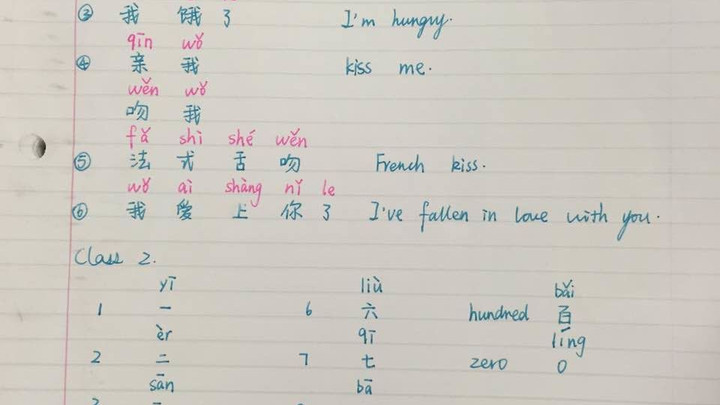 ③ 我 饿 了 I'm hungry.
qīn wǒ
④ 亲 我 kiss me.
wěn wǒ
吻 我
fǎ shì shé wěn
⑤ 法 式 舌 吻 French kiss.
wǒ ài shàng nǐ le
⑥ 我 爱 上 你 了 I've fallen in love with you.
Class 2.
yī liù bǎi
1 一 6 六 hundred 百
èr qī líng
2 二 7 七 zero 0
sān bā